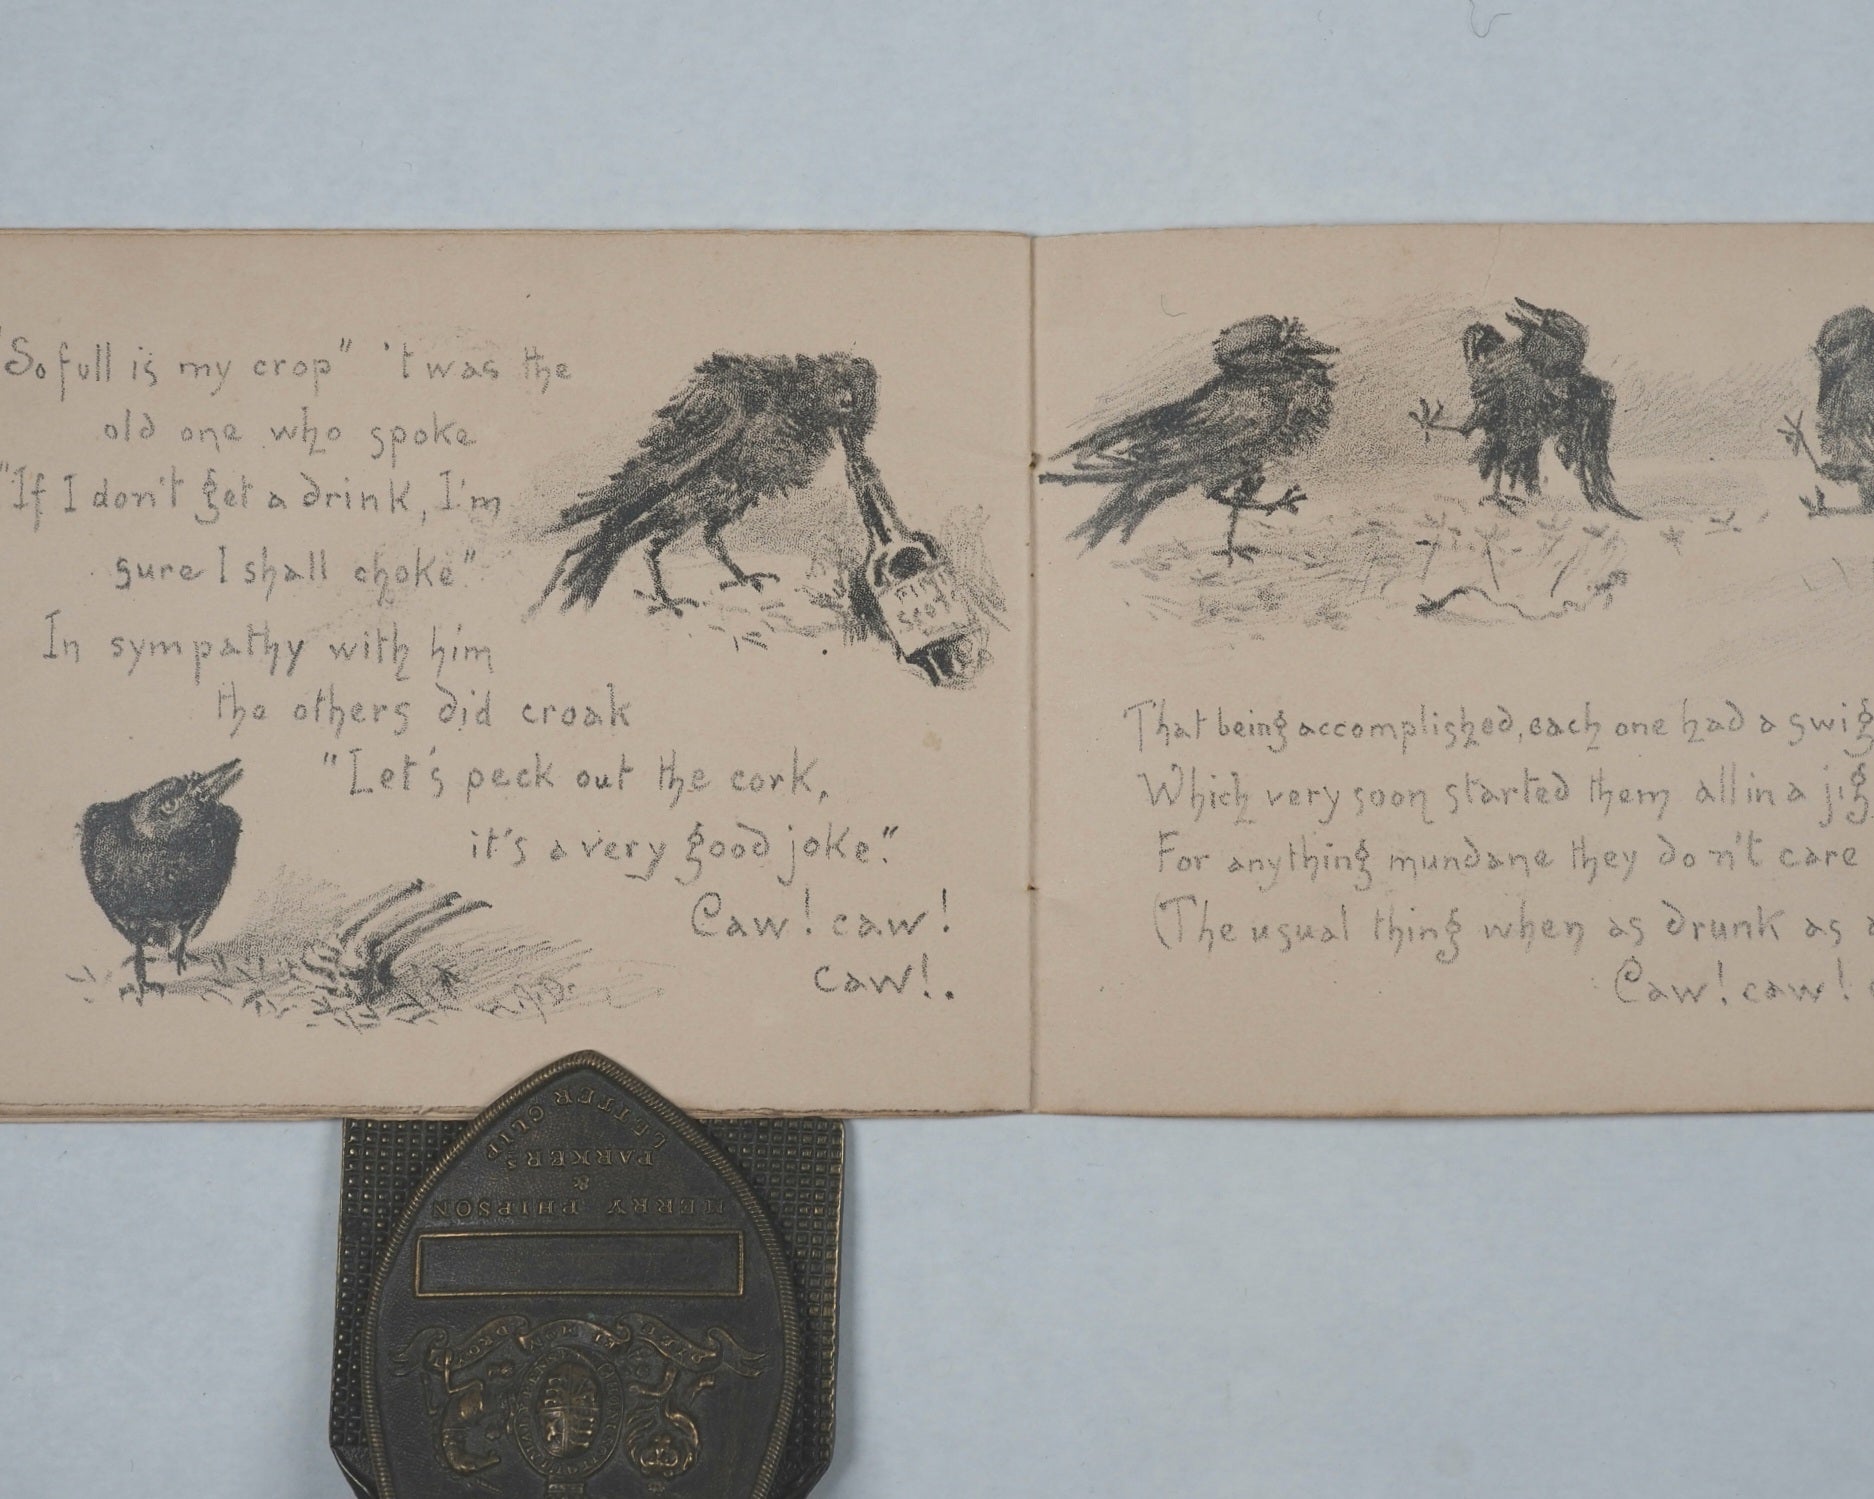 "So full is my crop" 't was the
old one who spoke
"If I don't get a drink, I'm
sure I shall choke"
In sympathy with him
the others did croak
"Let's peck out the cork,
it's a very good joke."
Caw! caw!
caw!.
That being accomplished, each one had a swig
Which very soon started them all in a jig
For anything mundane they don't care
(The usual thing when as drunk as a
Caw! caw!
LETTER CLIP
PARKER'S
&
MERRY PHIPSON